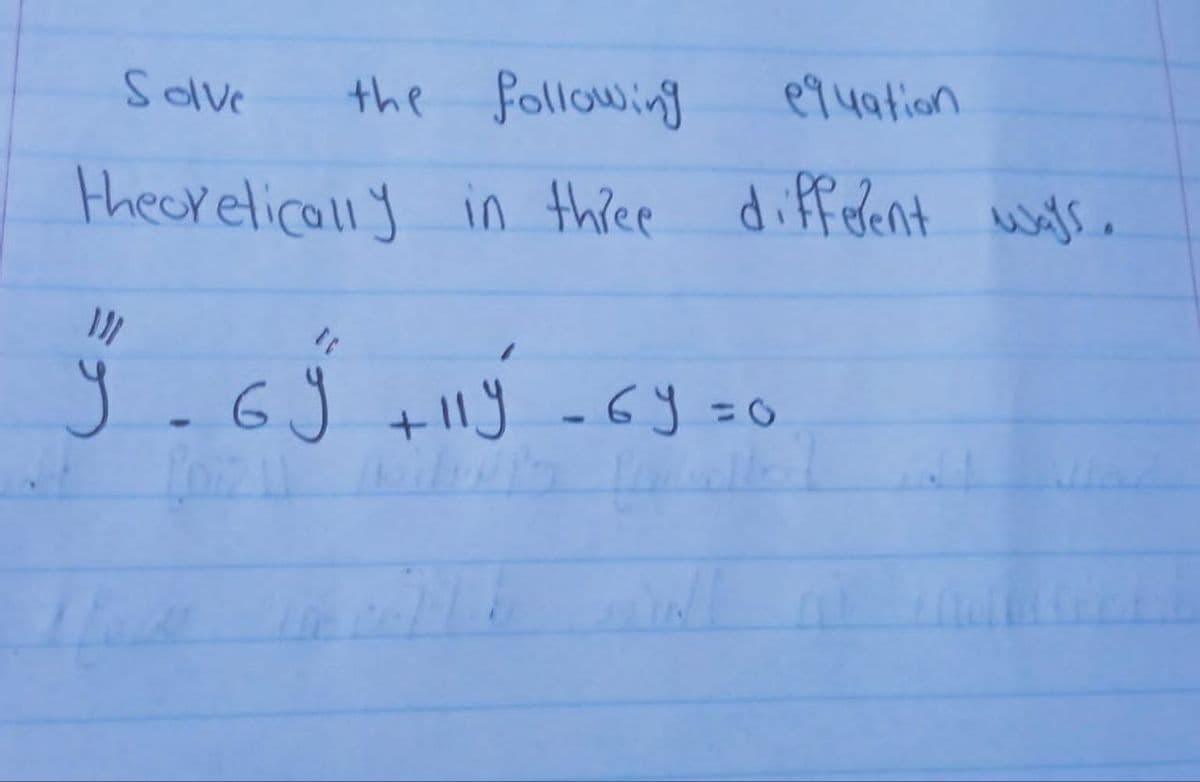 Solve the following equation
theoretically in three different ways.
y''' - 6y'' + 11y' - 6y = 0